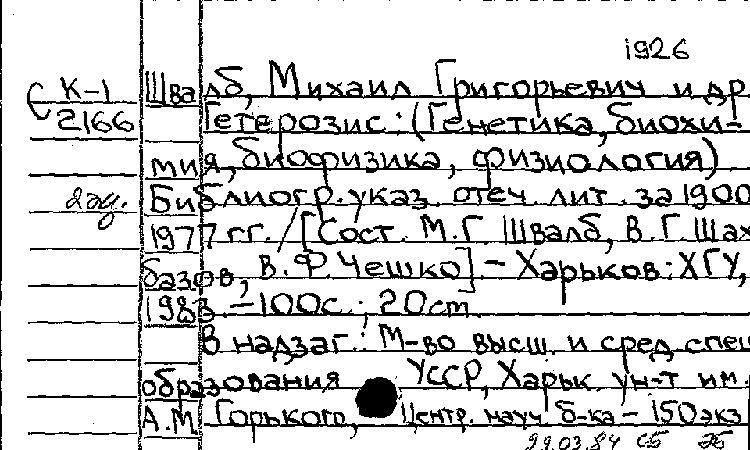 1926
К-1 Швалб, Михаил Григорьевич и др
2166 Гетерозис: (Генетика, биохи-
мия, биофизика, физиология)
Библиогр. указ. отеч. лит. за 1900
1977 гг. /[Сост. М.Г. Швалб, В.Г. Шах
базов, В.Ф. Чешко]. - Харьков: ХГУ,
1983. - 100с.; 20см.
В надзаг.: М-во высш. и сред. спец
образования УССР, Харьк. ун-т им.
А.М. Горького, Центр. науч. б-ка - 150экз
29.03.84